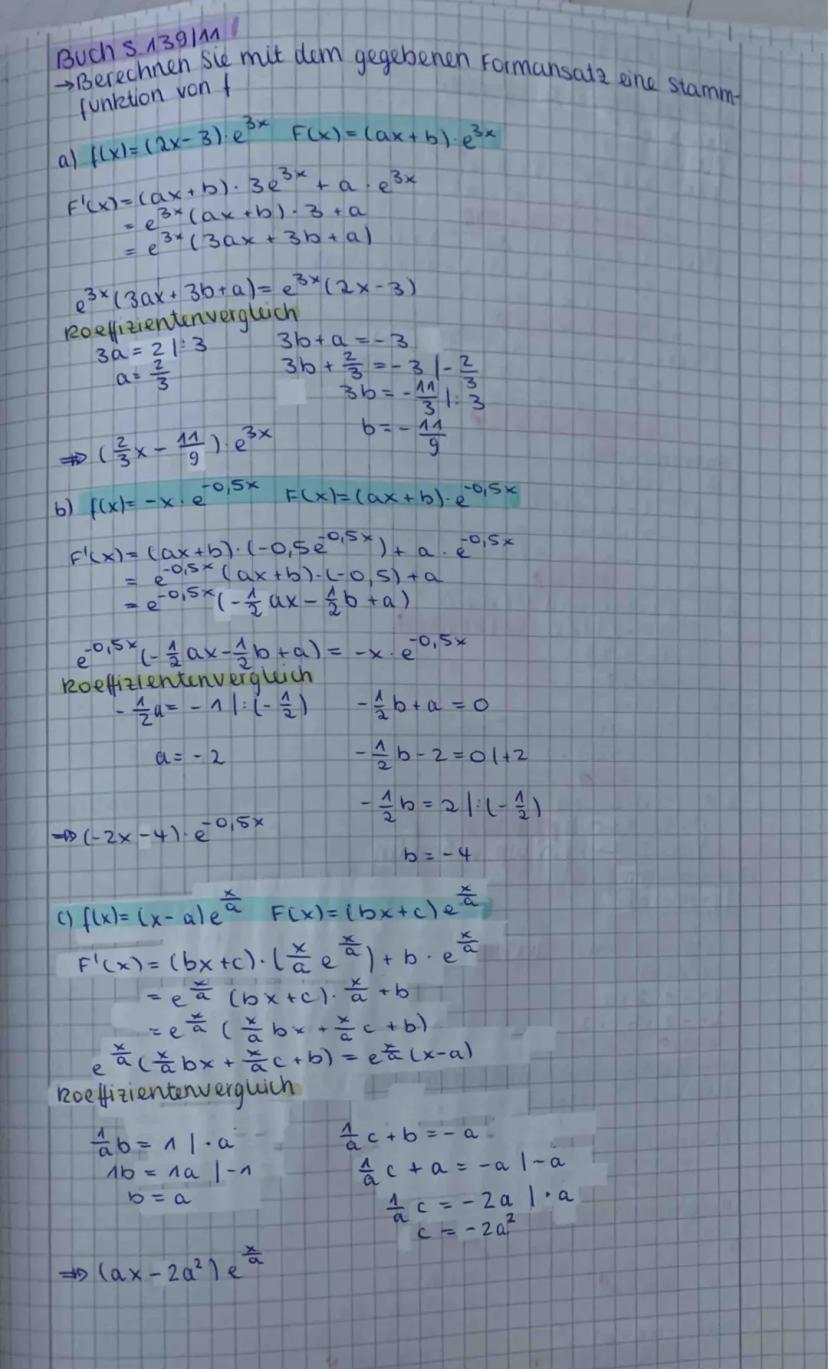 Buch S. 139/11
→ Berechnen Sie mit dem gegebenen Formansatz eine Stamm-
funktion von f
a) f(x) = (2x-3)·e^{3x}   F(x) = (ax+b)·e^{3x}
F'(x) = (ax+b)·3e^{3x} + a·e^{3x}
= e^{3x}(ax+b)·3+a
= e^{3x}(3ax+3b+a)
e^{3x}(3ax+3b+a) = e^{3x}(2x-3)
Koeffizientenvergleich
3a = 2 |:3   3b+a = -3
a = 2/3   3b + 2/3 = -3 |- 2/3
3b = - 11/3 |:3
b = - 11/9
⇒ (2/3 x - 11/9)·e^{3x}
b) f(x) = -x·e^{-0,5x}   F(x) = (ax+b)·e^{-0,5x}
F'(x) = (ax+b)·(-0,5e^{-0,5x}) + a·e^{-0,5x}
= e^{-0,5x}(ax+b)·(-0,5)+a
= e^{-0,5x}(-1/2 ax - 1/2 b + a)
e^{-0,5x}(-1/2 ax - 1/2 b + a) = -x·e^{-0,5x}
Koeffizientenvergleich
-1/2 a = -1 |:(-1/2)   -1/2 b + a = 0
a = -2   -1/2 b - 2 = 0 |+2
-1/2 b = 2 |:(-1/2)
⇒ (-2x-4)·e^{-0,5x}
b = -4
c) f(x) = (x-a)e^{x/a}   F(x) = (bx+c)e^{x/a}
F'(x) = (bx+c)·(x/a e^{x/a}) + b·e^{x/a}
= e^{x/a} (bx+c)· x/a + b
= e^{x/a} (x/a bx + x/a c + b)
e^{x/a}(x/a bx + x/a c + b) = e^{x/a}(x-a)
Koeffizientenvergleich
1/a b = 1 |·a   1/a c + b = -a
1b = 1a |-1   1/a c + a = -a |-a
b = a   1/a c = -2a |·a
c = -2a²
⇒ (ax-2a²)e^{x/a}